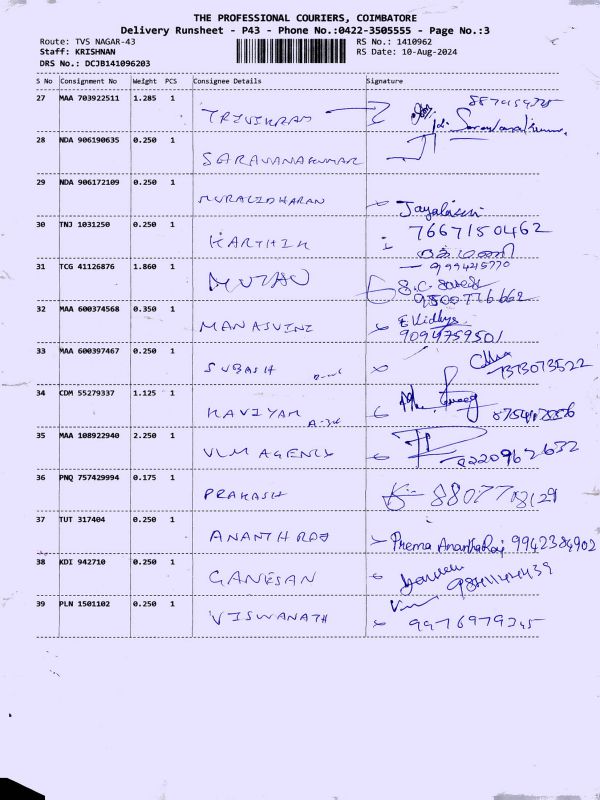 THE PROFESSIONAL COURIERS, COIMBATORE
Delivery Runsheet - P43 - Phone No.:0422-3505555 - Page No.:3
Route: TVS NAGAR-43 RS No.: 1410962
Staff: KRISHNAN RS Date: 10-Aug-2024
DRS No.: DCJB141096203
S No Consignment No Weight PCS Consignee Details Signature
27 MAA 703922511 1.285 1 TRIVIKRAM
28 NDA 906190635 0.250 1 SARAVANAKUMAR
29 NDA 906172109 0.250 1 MURALIDHARAN
30 TNJ 1031250 0.250 1 KARTHIK 7667150462
31 TCG 41126876 1.860 1 S.C.
32 MAA 600374568 0.350 1 MANASVINI E Vidhya
9094759501
33 MAA 600397467 0.250 1 SUBASH
34 CDM 55279337 1.125 1 KAVIYAR
35 MAA 108922940 2.250 1 VLM AGENCY 8220962632
36 PNQ 757429994 0.175 1 PRAKASH
37 TUT 317404 0.250 1 ANANTH RAJ Prema AnanthaRaj 9942384902
38 KDI 942710 0.250 1 GANESAN
39 PLN 1501102 0.250 1 VISWANATH 9976979245